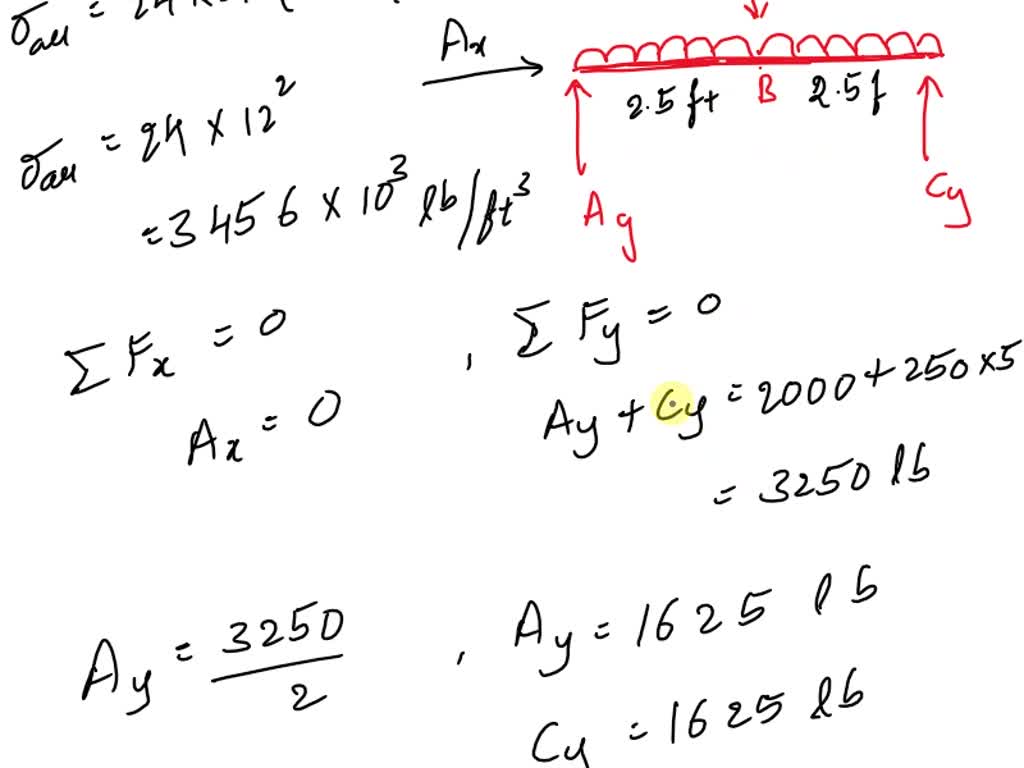 σ_all = 24
A_x
2.5 ft B 2.5 f
σ_all = 24 × 12²
= 3456 × 10³ lb/ft³
A_y C_y
Σ F_x = 0 , Σ F_y = 0
A_x = 0
A_y + C_y = 2000 + 250 × 5
= 3250 lb
A_y = 3250/2 , A_y = 1625 lb
C_y = 1625 lb